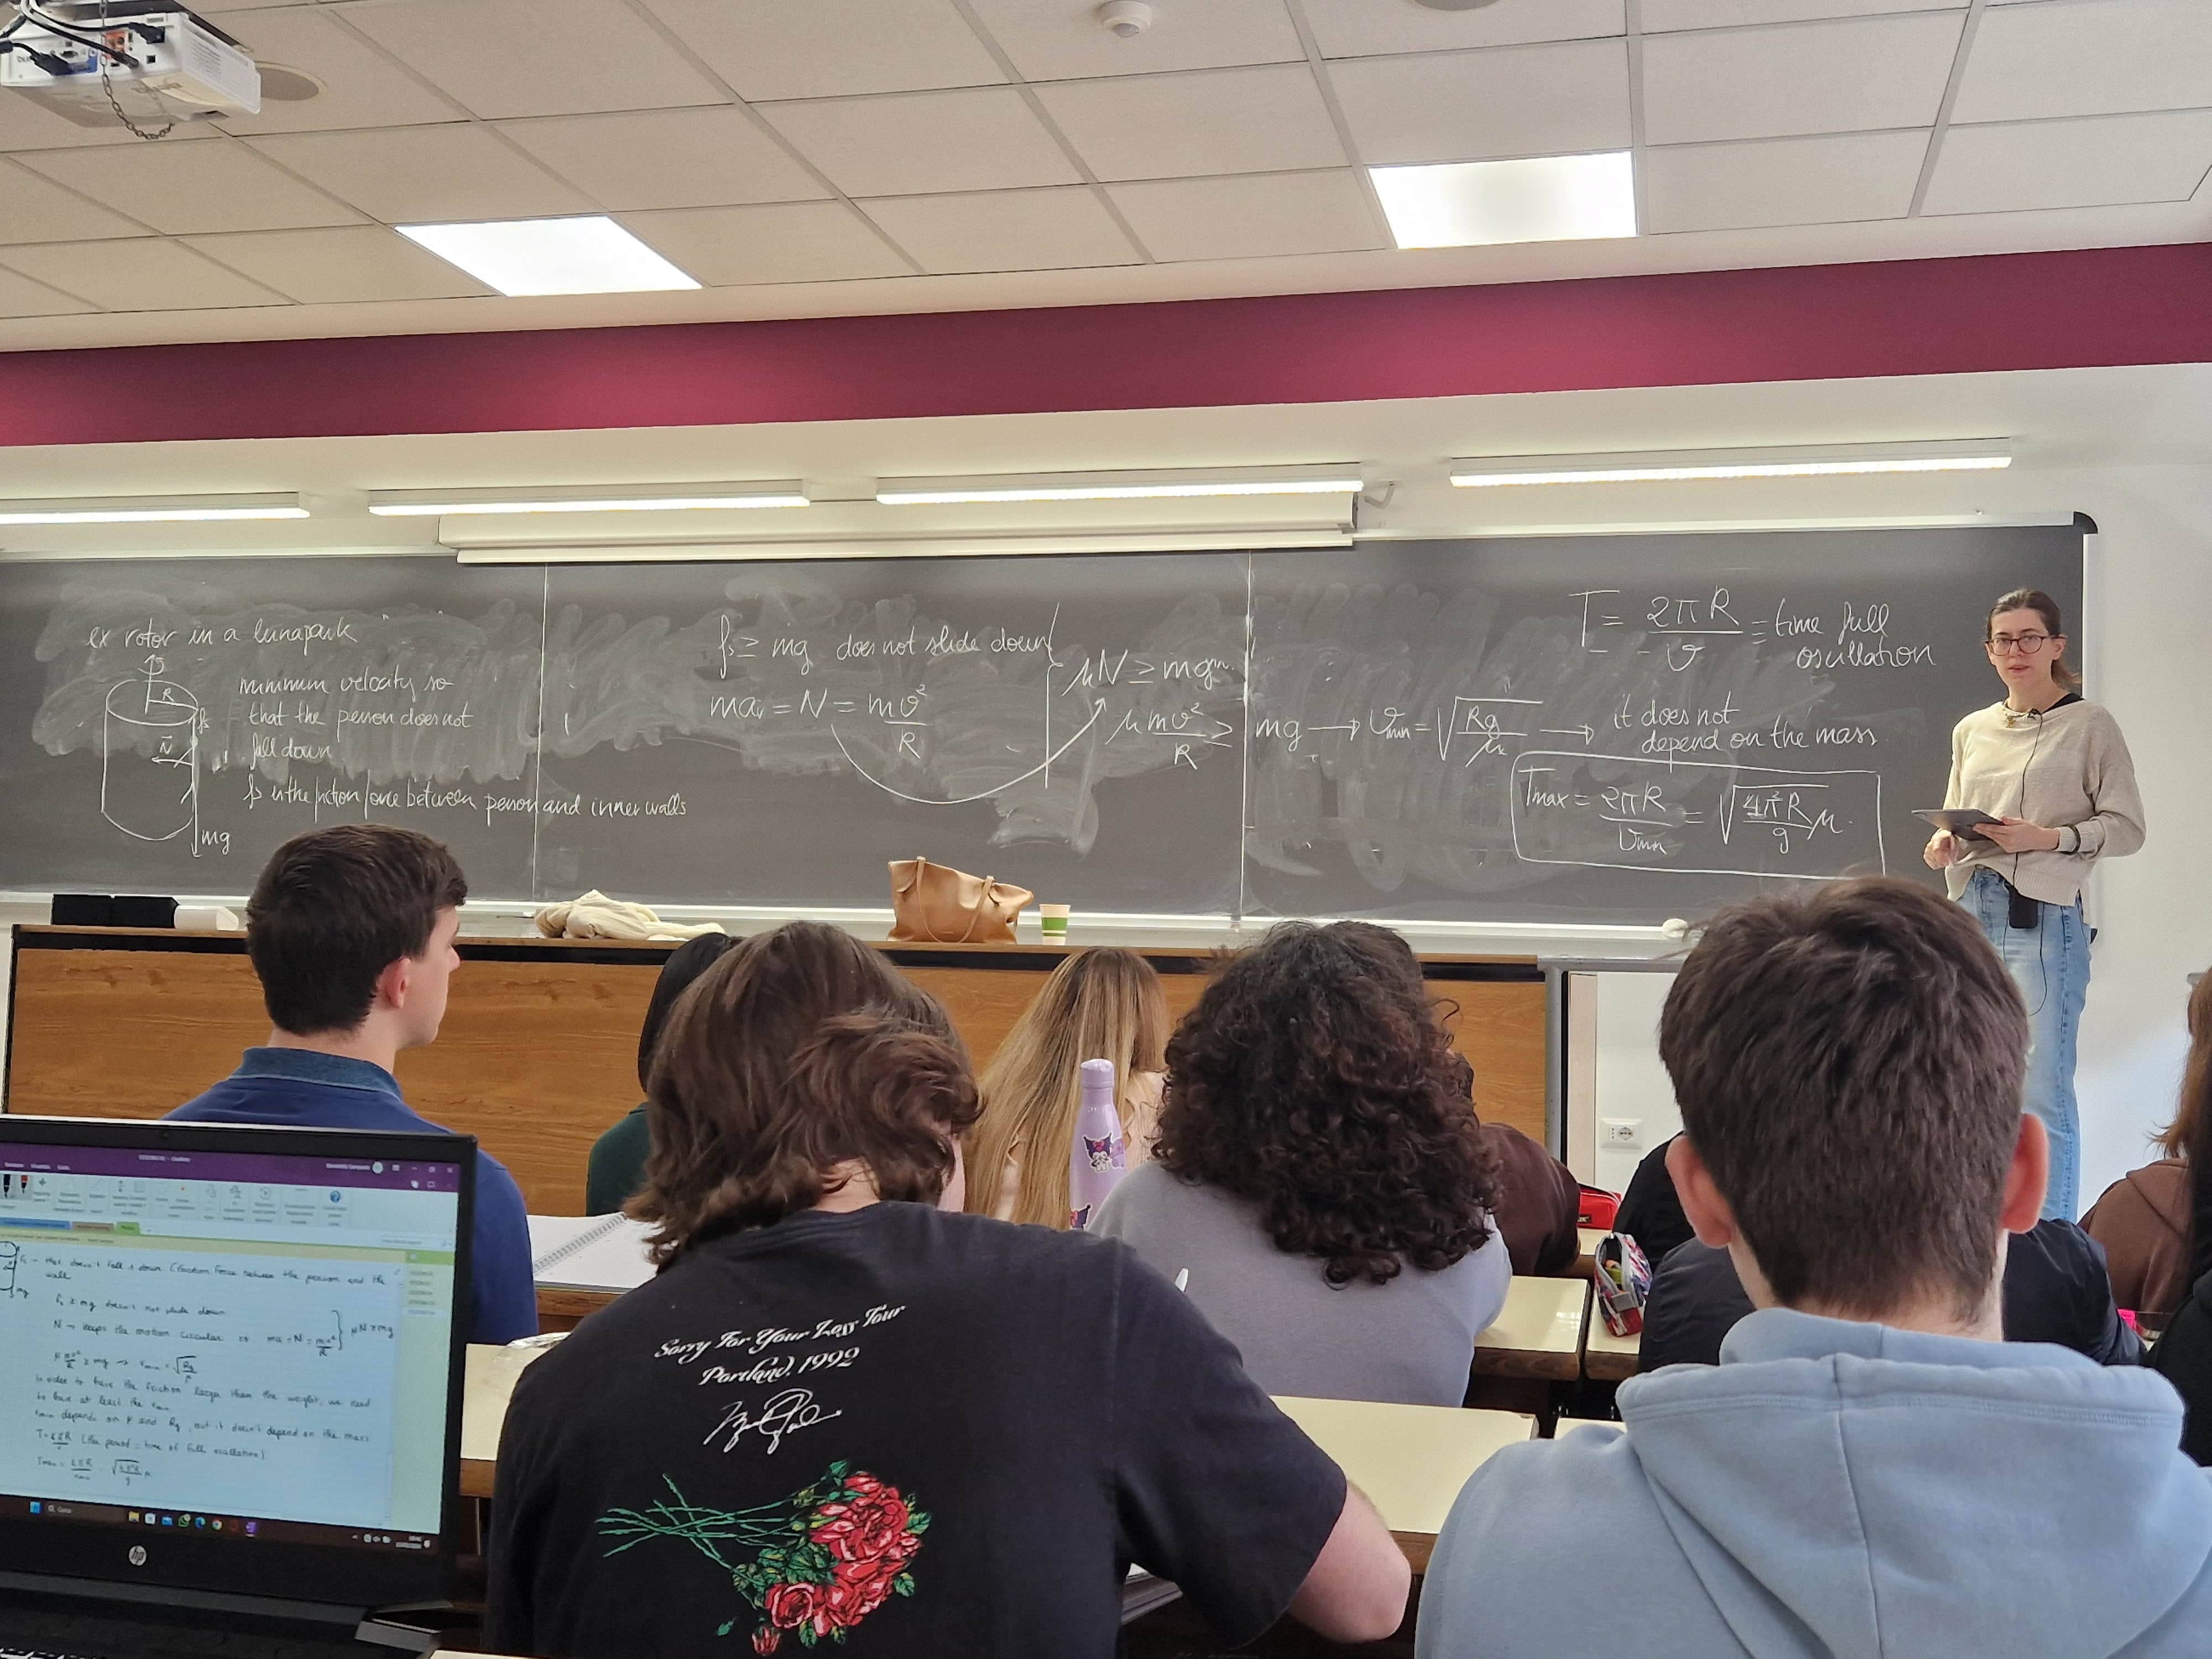 ex rotor in a lunapark
R
fs
N
mg
minimum velocity so
that the person does not
fall down
fs is the friction force between person and inner walls
fs ≥ mg does not slide down
ma = N = mv²/R
μN ≥ mg
μ mv²/R ≥ mg → vmin = √(Rg/μ) → it does not
depend on the mass
T = 2πR/v = time full
oscillation
Tmax = 2πR/vmin = √(4π²R/g μ)
fs → that doesn't fall down (friction force between the person and the
wall
mg
fs ≥ mg doesn't not slide down
N → keeps the motion circular ma = N = mv²/R } μN ≥ mg
μ mv²/R ≥ mg → vmin = √(Rg/μ)
in order to have the friction larger than the weight, we need
to have at least the vmin
vmin depends on μ and Rg, but it doesn't depend on the mass
T = 2πR/v (the period: time of full oscillation)
Tmax = 2πR/vmin = √(4π²R/g μ)
hp
Sorry For Your Loss Tour
Portland, 1992